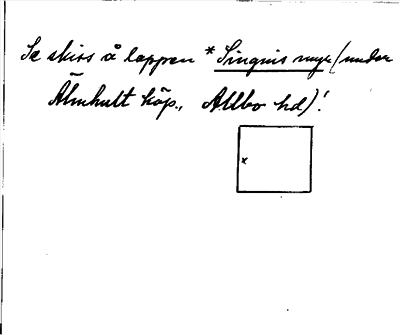 Se skiss å lappen * Singnis myr (under
Älmhult köp., Allbo hd)!
x